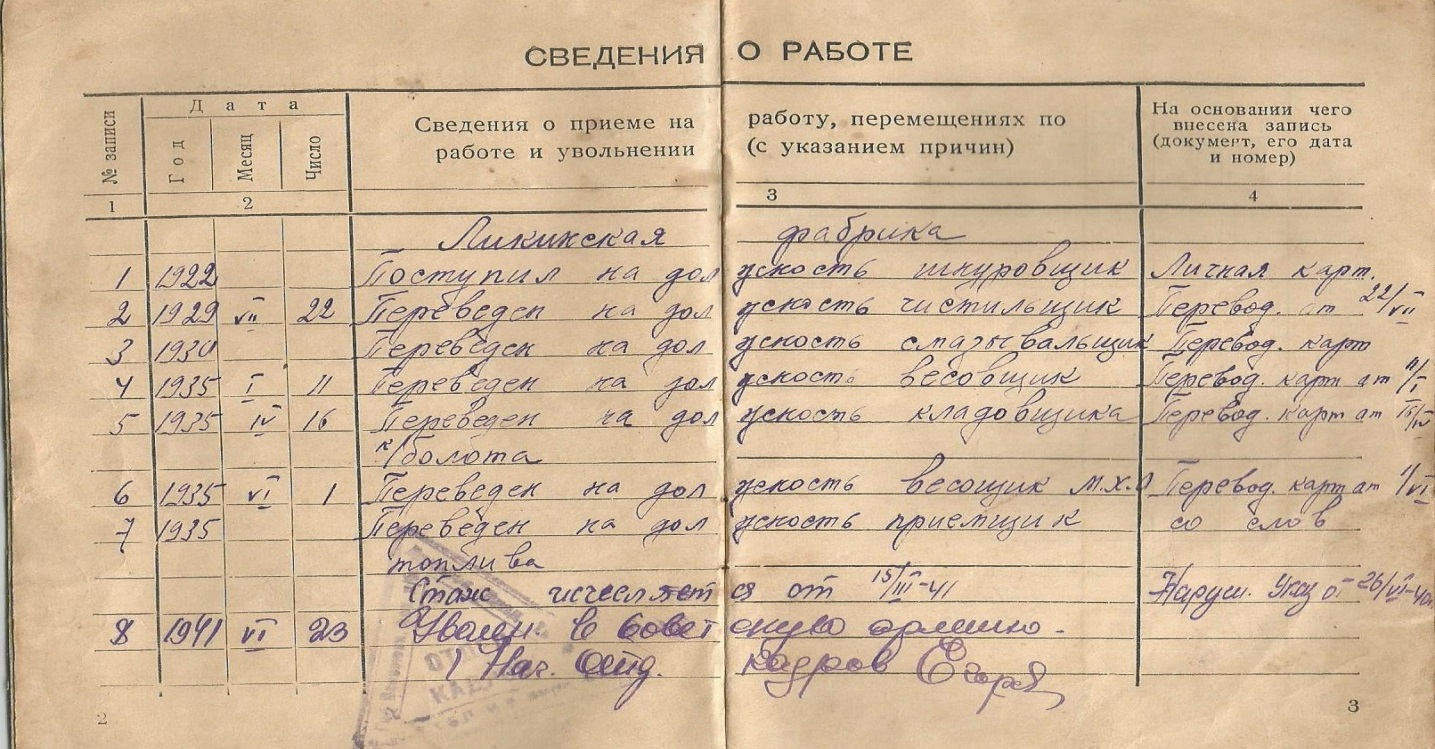 СВЕДЕНИЯ О РАБОТЕ
№ записи
Дата
Год
Месяц
Число
Сведения о приеме на работу, перемещениях по
работе и увольнении (с указанием причин)
На основании чего
внесена запись
(документ, его дата
и номер)
1 2 3 4
Ликинская фабрика
1 1922 Поступил на должность шнуровщик Личная карт.
2 1929 VII 22 Переведен на должность чистильщик Перевод. от 22/VII
3 1930 Переведен на должность смазывальщик Перевод. карт
4 1935 I 11 Переведен на должность весовщик Перевод. карт от 11/I
5 1935 IV 16 Переведен на должность кладовщика Перевод. карт от 16/IV
к/болота
6 1935 VI 1 Переведен на должность весощик м.х.о Перевод. карт от 1/VI
7 1935 Переведен на должность приемщик со слов
топлива
Стаж исчесляется от 15/III-41 Наруш. Указ от 26/VI-40г.
8 1941 VI 23 Уволен. в Советскую армию.
Нач. Отд. кадров Егоров
ОТДЕЛ
КАДРОВ
2 3